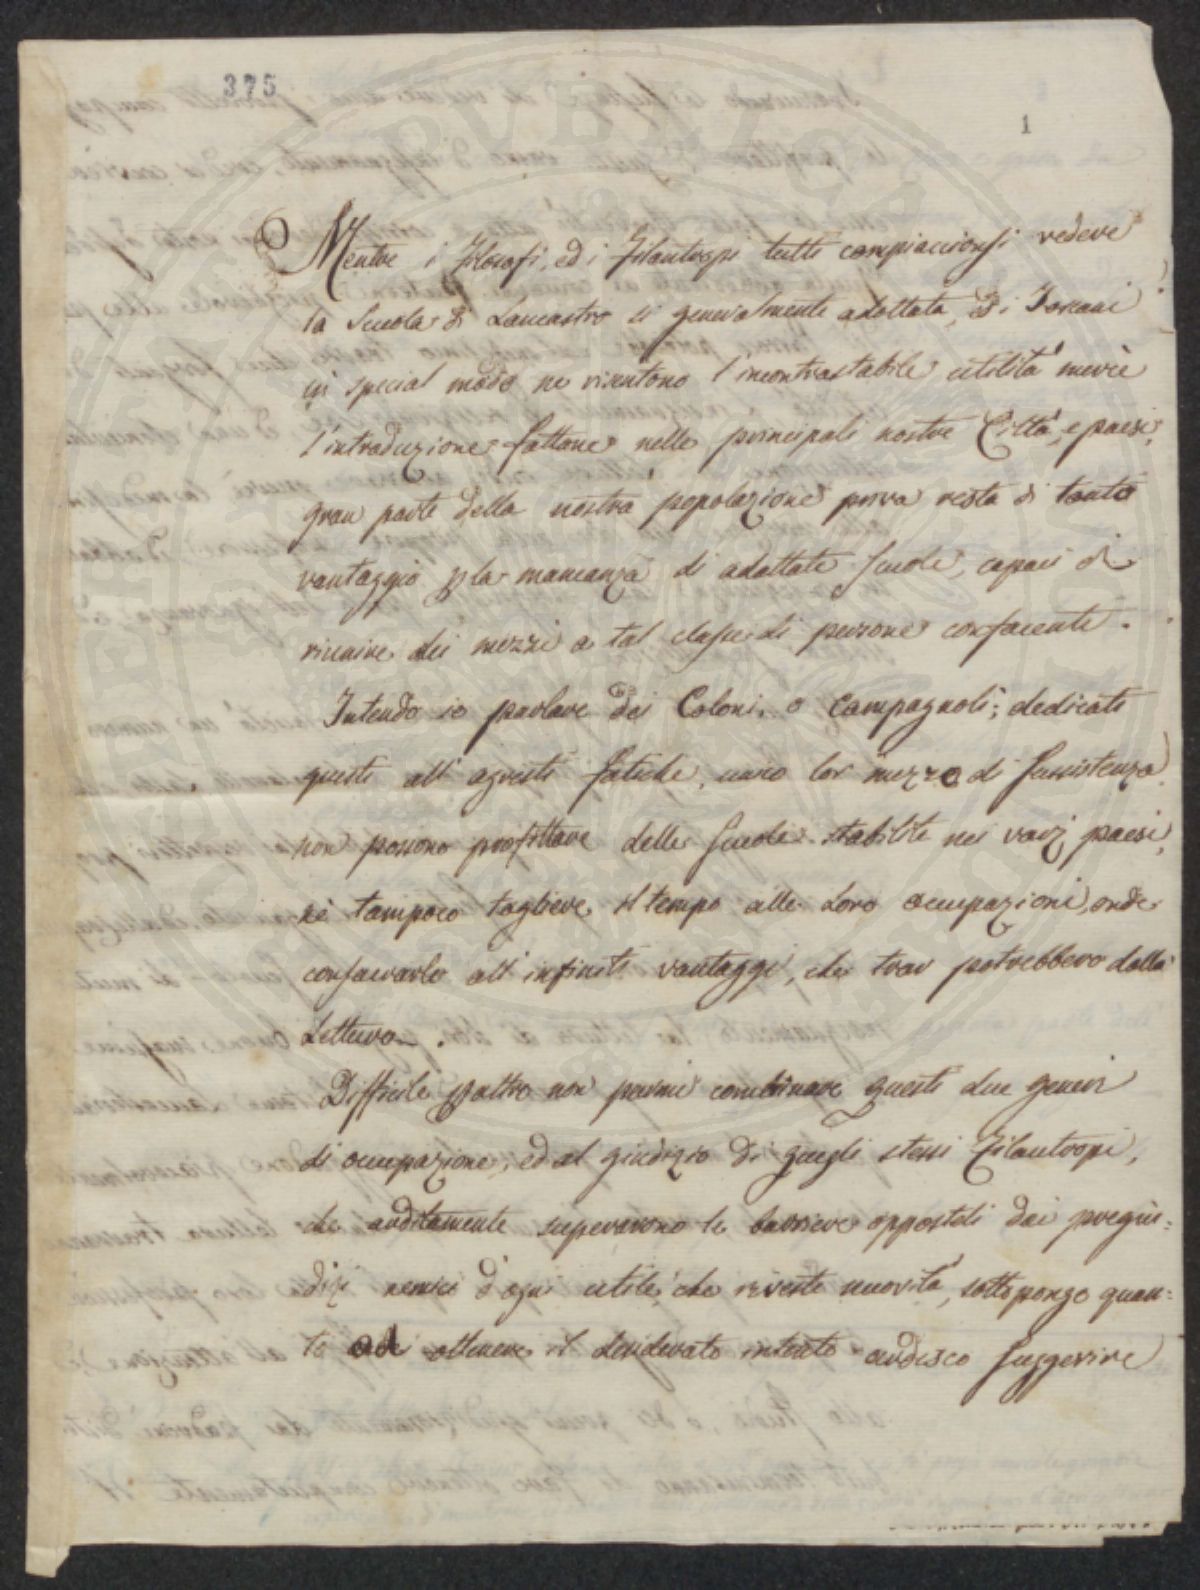 375
1
Mentre i Filosofi, ed i Filantropi tutti compiaccionsi vedere
la Scuola di Lancastro sì generalmente adottata, Ed i Toscani
in special modo ne risentono l'incontrastabile utilità mercè
l'introduzione fattane nelle principali nostre Città, e paesi,
gran parte della nostra popolazione priva resta di tanto
vantaggio p la mancanza di adattate scuole, capaci di
riunire dei mezzi a tal classe di persone confacenti.
Intendo io parlare dei Coloni, o Campagnoli; dedicati
questi all'agresti fatiche, unico lor mezzo di sussistenza
non possono profittare delle scuole stabilite nei varj paesi,
nè tampoco togliere il tempo alle loro occupazioni, onde
consacrarlo all'infiniti vantaggi, che trar potrebbero dalla
Lettura.
Difficile p altro non parmi combinare questi due generi
di occupazione, ed al giudizio di quegli stessi Filantropi,
che arditamente superarono le barriere opposteli dai pregiu=
dizi nemici d'ogni utile, che riveste novità, sottopongo quan=
to ad ottenere il desiderato intento ardisco suggerire